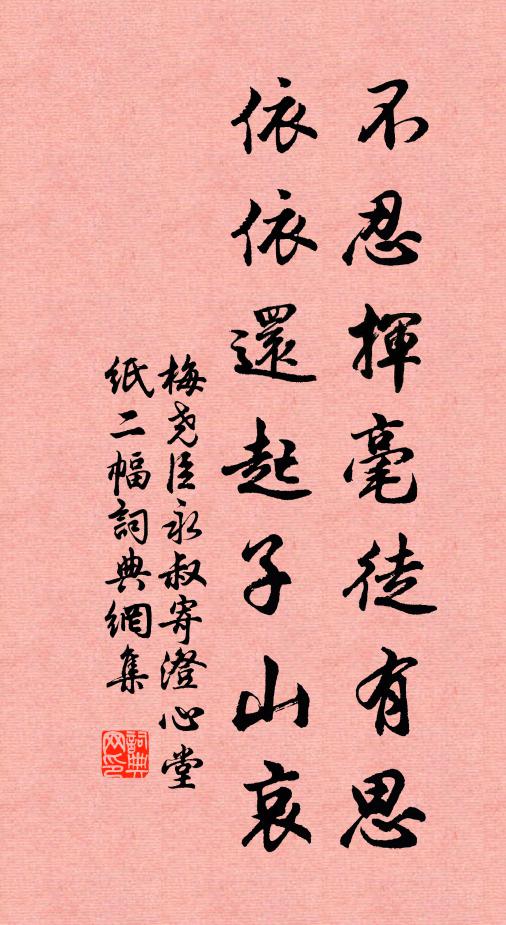 不忍揮毫徒有思
依依還起子山哀
梅尧臣永叔寄澄心堂
紙二幅詞典網集
詞典
网印